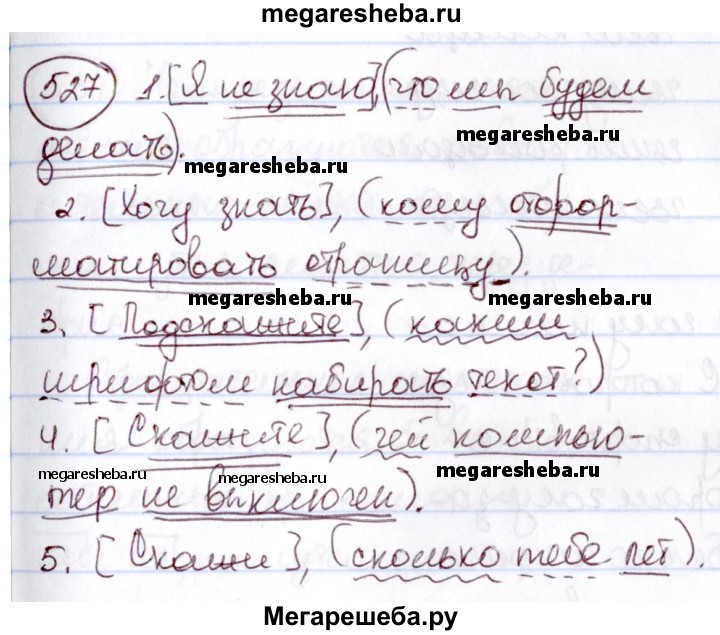 megaresheba.ru
527 1. [Я не знаю], (что мы будем
megaresheba.ru
делать).
megaresheba.ru
2. [Хочу знать], (кому отфор-
матировать страницу).
megaresheba.ru megaresheba.ru
3. [Подскажите], (каким
шрифтом набирать текст?)
megaresheba.ru megaresheba.ru
4. [Скажите], (чей компью-
megaresheba.ru megaresheba.ru
тер не выключен).
5. [Скажи], (сколько тебе лет).
Мегарешеба.ру